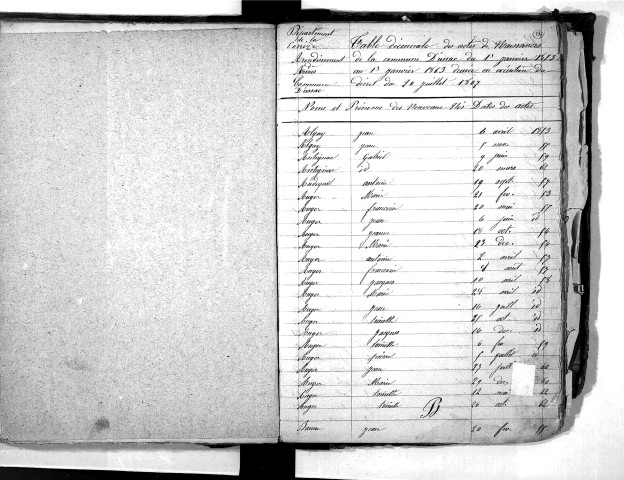 Département
de la
Corrèze
Table décennale des actes de Naissances
Arrondissement de la commune D'ussac du 1er janvier 1853
au 1er janvier 1863 dressée en exécution du
Commune décret du 20 juillet 1807
D'ussac
Noms et Prénoms des Nouveaux Nés Dates des actes
jean 6 avril 1853
jean 5 mai
Gabriel 9 juin 59
id 20 mars 62
antoine 19 sept. 57
Auger Marie 21 fév. 53
Auger francoise 20 mai 55
Auger jean 6 juin id
Auger jeanne 13 oct. 56
Auger Marie 23 déc. 56
Auger antoine 2 avril 57
Auger francois 4 avril 57
Auger jacques 10 avril 58
Auger Marie 24 avril id
Auger jean 16 juillt id
Auger toinette 25 oct. id
Auger jacques 16 déc. id
Auger toinette 6 fév. 59
Auger pierre 5 juillet id
Auger jean 23 juill 60
Auger Marie 29 déc. 60
Auger toinette 12 mai 62
Auger toinette 26 oct. 62
B
jean 20 fév.